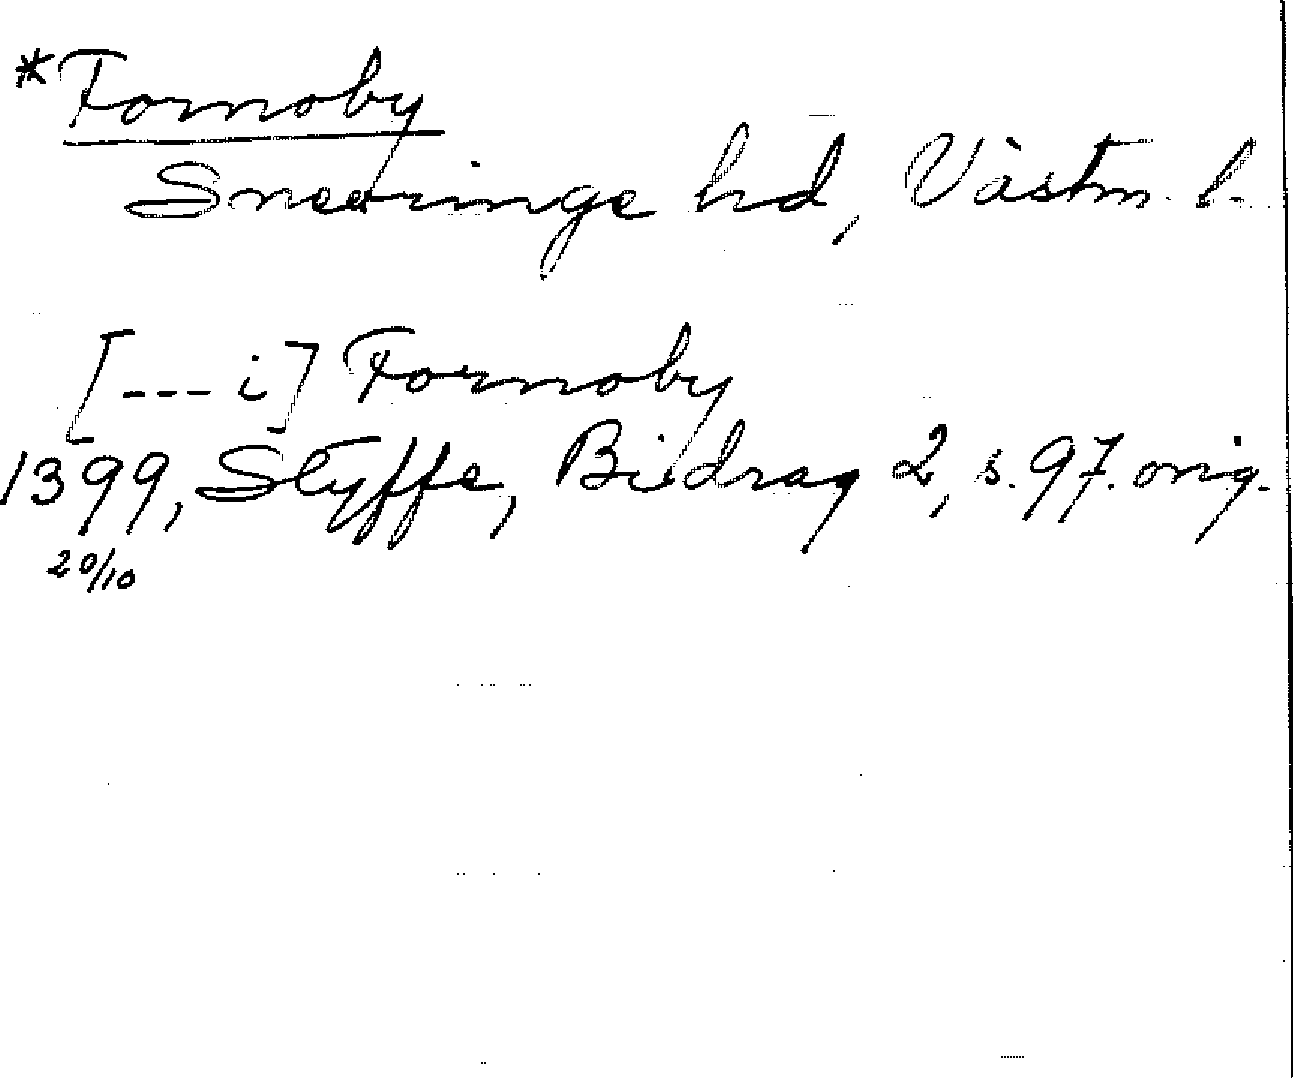 *Fornoby
Sneeringe hd, Västm. l.
[--- i] Fornoby
1399, Styffe, Bidrag 2, s. 97. orig.
20/10